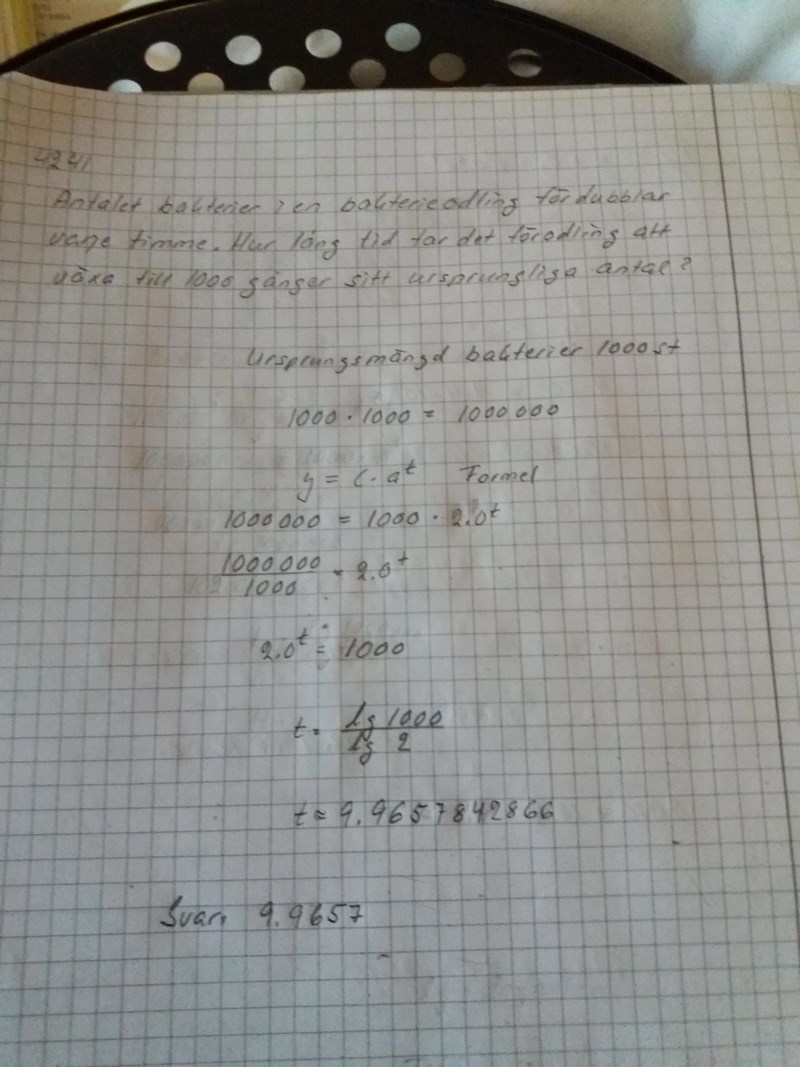 4241
Antalet bakterier i en bakterieodling fördubblar
varje timme. Hur lång tid tar det för odling att
växa till 1000 gånger sitt ursprungliga antal?
Ursprungsmängd bakterier 1000 st
1000 · 1000 = 1000 000
y = C · a^t Formel
1000 000 = 1000 · 2.0^t
1000 000 / 1000 = 2.0^t
2.0^t = 1000
t = lg 1000 / lg 2
t ≈ 9.9657842866
Svar: 9.9657